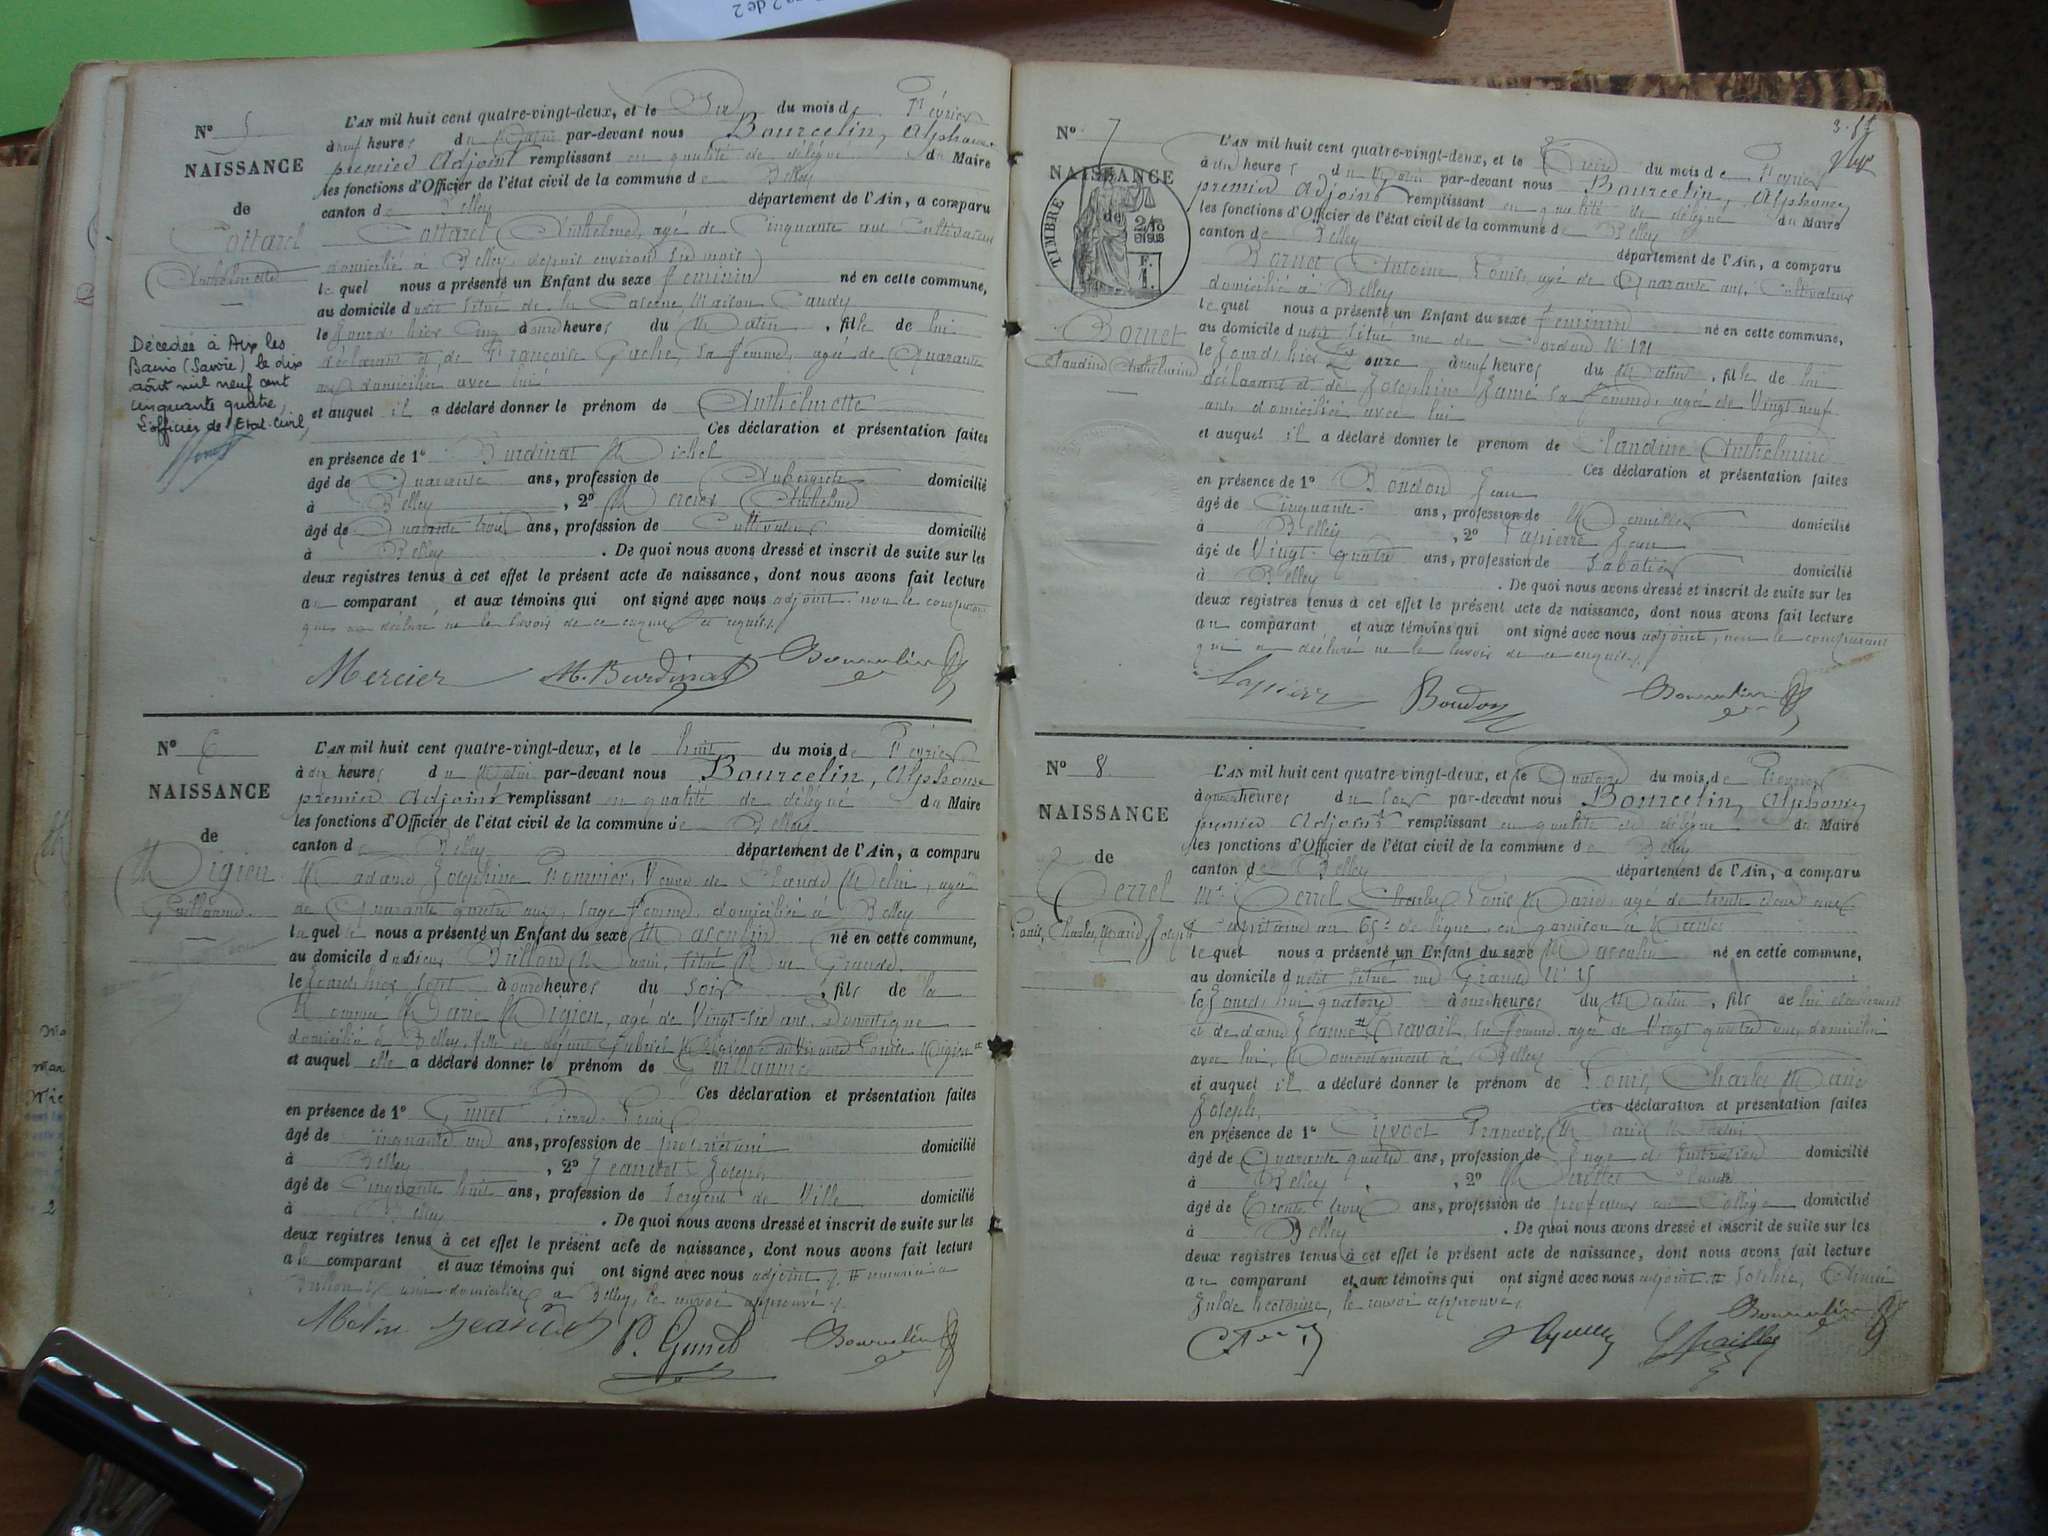 2 de 2
N° 5
NAISSANCE
de
Cottarel
Anthelmette
Décédée à Aix les
Bains (Savoie) le dix
août mil neuf cent
cinquante quatre,
L'officier de l'Etat-Civil,
L'AN mil huit cent quatre-vingt-deux, et le Six du mois de Février
à neuf heures du Matin par-devant nous Bourcelin, Alphonse
premier Adjoint remplissant en qualité de délégué du Maire
les fonctions d'Officier de l'état civil de la commune de Belley
canton de Belley département de l'Ain, a comparu
Cottarel Anthelme, agé de Cinquante ans Cultivateur
domicilié à Belley, depuis environ six mois
lequel nous a présenté un Enfant du sexe féminin né en cette commune,
au domicile dudit situé de la Caserne, Maison
le Jourdhier Cinq à heures du Matin, fille de lui
déclarant et de Françoise sa femme, agée de Quarante
ans domiciliée avec lui
et auquel il a déclaré donner le prénom de Anthelmette
Ces déclaration et présentation faites
en présence de 1° Burdinat Michel
âgé de Quarante ans, profession de Aubergiste domicilié
à Belley, 2° Mercier Anthelme
âgé de Quarante trois ans, profession de Cultivateur domicilié
à Belley. De quoi nous avons dressé et inscrit de suite sur les
deux registres tenus à cet effet le présent acte de naissance, dont nous avons fait lecture
au comparant et aux témoins qui ont signé avec nous adjoint. non le comparant
qui a déclaré ne le savoir de ce enquis et requis.
Mercier M. Burdinat Bourcelin
N° 6
NAISSANCE
de
Migieu
Guillaume
L'AN mil huit cent quatre-vingt-deux, et le huit du mois de Février
à dix heures du Matin par-devant nous Bourcelin, Alphonse
premier Adjoint remplissant en qualité de délégué du Maire
les fonctions d'Officier de l'état civil de la commune de Belley
canton de Belley département de l'Ain, a comparu
Madame Joséphine Veuve de Claude Melin, agée
de Quarante quatre ans, sage femme, domiciliée à Belley
laquelle nous a présenté un Enfant du sexe Masculin né en cette commune,
au domicile du sieur situé Rue Grande.
le Jourdhier sept à heures du soir, fils de la
Nommée Marie Migieu, agée de Vingt-six ans, Domestique
domiciliée à Belley, fille de défunt Gabriel
et auquel elle a déclaré donner le prénom de Guillaume
Ces déclaration et présentation faites
en présence de 1° Gunet Pierre Louis
âgé de Cinquante un ans, profession de propriétaire domicilié
à Belley, 2° Jeandet Joseph
âgé de Cinquante huit ans, profession de Sergent de Ville domicilié
à Belley. De quoi nous avons dressé et inscrit de suite sur les
deux registres tenus à cet effet le présent acte de naissance, dont nous avons fait lecture
a la comparant et aux témoins qui ont signé avec nous adjoint
domicilié à Belley, le renvoi approuvé
Melin Jeandet P. Gunet Bourcelin
N° 7
NAISSANCE
de
TIMBRE
2/10
EN SUS
F.
1.
Bornet
Claudine Anthelmine
L'AN mil huit cent quatre-vingt-deux, et le Treize du mois de Février
à heures du par-devant nous Bourcelin, Alphonse
premier Adjoint remplissant en qualité de délégué du Maire
les fonctions d'Officier de l'état civil de la commune de Belley
canton de Belley département de l'Ain, a comparu
Bornet Antoine, Louis, agé de Quarante ans, Cultivateur
domicilié à Belley
lequel nous a présenté un Enfant du sexe féminin né en cette commune,
au domicile dudit situé rue de
le Jourdhier onze à neuf heures du Matin, fille de lui
déclarant et de Joséphine Jamé sa femme, agée de Vingt neuf
ans, domiciliée avec lui
et auquel il a déclaré donner le prénom de Claudine Anthelmine
Ces déclaration et présentation faites
en présence de 1° Boudon Jean
âgé de Cinquante ans, profession de Menuisier domicilié
à Belley, 2° Lapierre Jean
âgé de Vingt-quatre ans, profession de Sabotier domicilié
à Belley. De quoi nous avons dressé et inscrit de suite sur les
deux registres tenus à cet effet le présent acte de naissance, dont nous avons fait lecture
au comparant et aux témoins qui ont signé avec nous adjoint, non le comparant
qui a déclaré ne le savoir de ce enquis.
Lapierre Boudon Bourcelin
N° 8.
NAISSANCE
de
Perrel
Louis, Charles, Marie, Joseph
L'AN mil huit cent quatre-vingt-deux, et le Quatorze du mois de Février
à heures du soir par-devant nous Bourcelin, Alphonse
premier Adjoint remplissant en qualité de délégué du Maire
les fonctions d'Officier de l'état civil de la commune de Belley
canton de Belley département de l'Ain, a comparu
Mr Perrel Charles Louis Marie, agé de trente ans
Capitaine au 65e de ligne, en garnison à Nantes
lequel nous a présenté un Enfant du sexe Masculin né en cette commune,
au domicile dudit situé rue Grande N° 15
le Jourdhui quatorze à heures du Matin, fils de lui déclarant
et de dame Jeanne # Travail, sa femme, agée de Vingt quatre ans, domiciliée
avec lui, Momentanément à Belley
et auquel il a déclaré donner le prénom de Louis, Charles Marie
Joseph. Ces déclaration et présentation faites
en présence de 1° François, Marie
âgé de Quarante quatre ans, profession de Juge d'Instruction domicilié
à Belley, 2°
âgé de Trente trois ans, profession de professeur au Collège domicilié
à Belley. De quoi nous avons dressé et inscrit de suite sur les
deux registres tenus à cet effet le présent acte de naissance, dont nous avons fait lecture
au comparant et aux témoins qui ont signé avec nous adjoint. # Sophie,
le renvoi approuvé.
Bourcelin